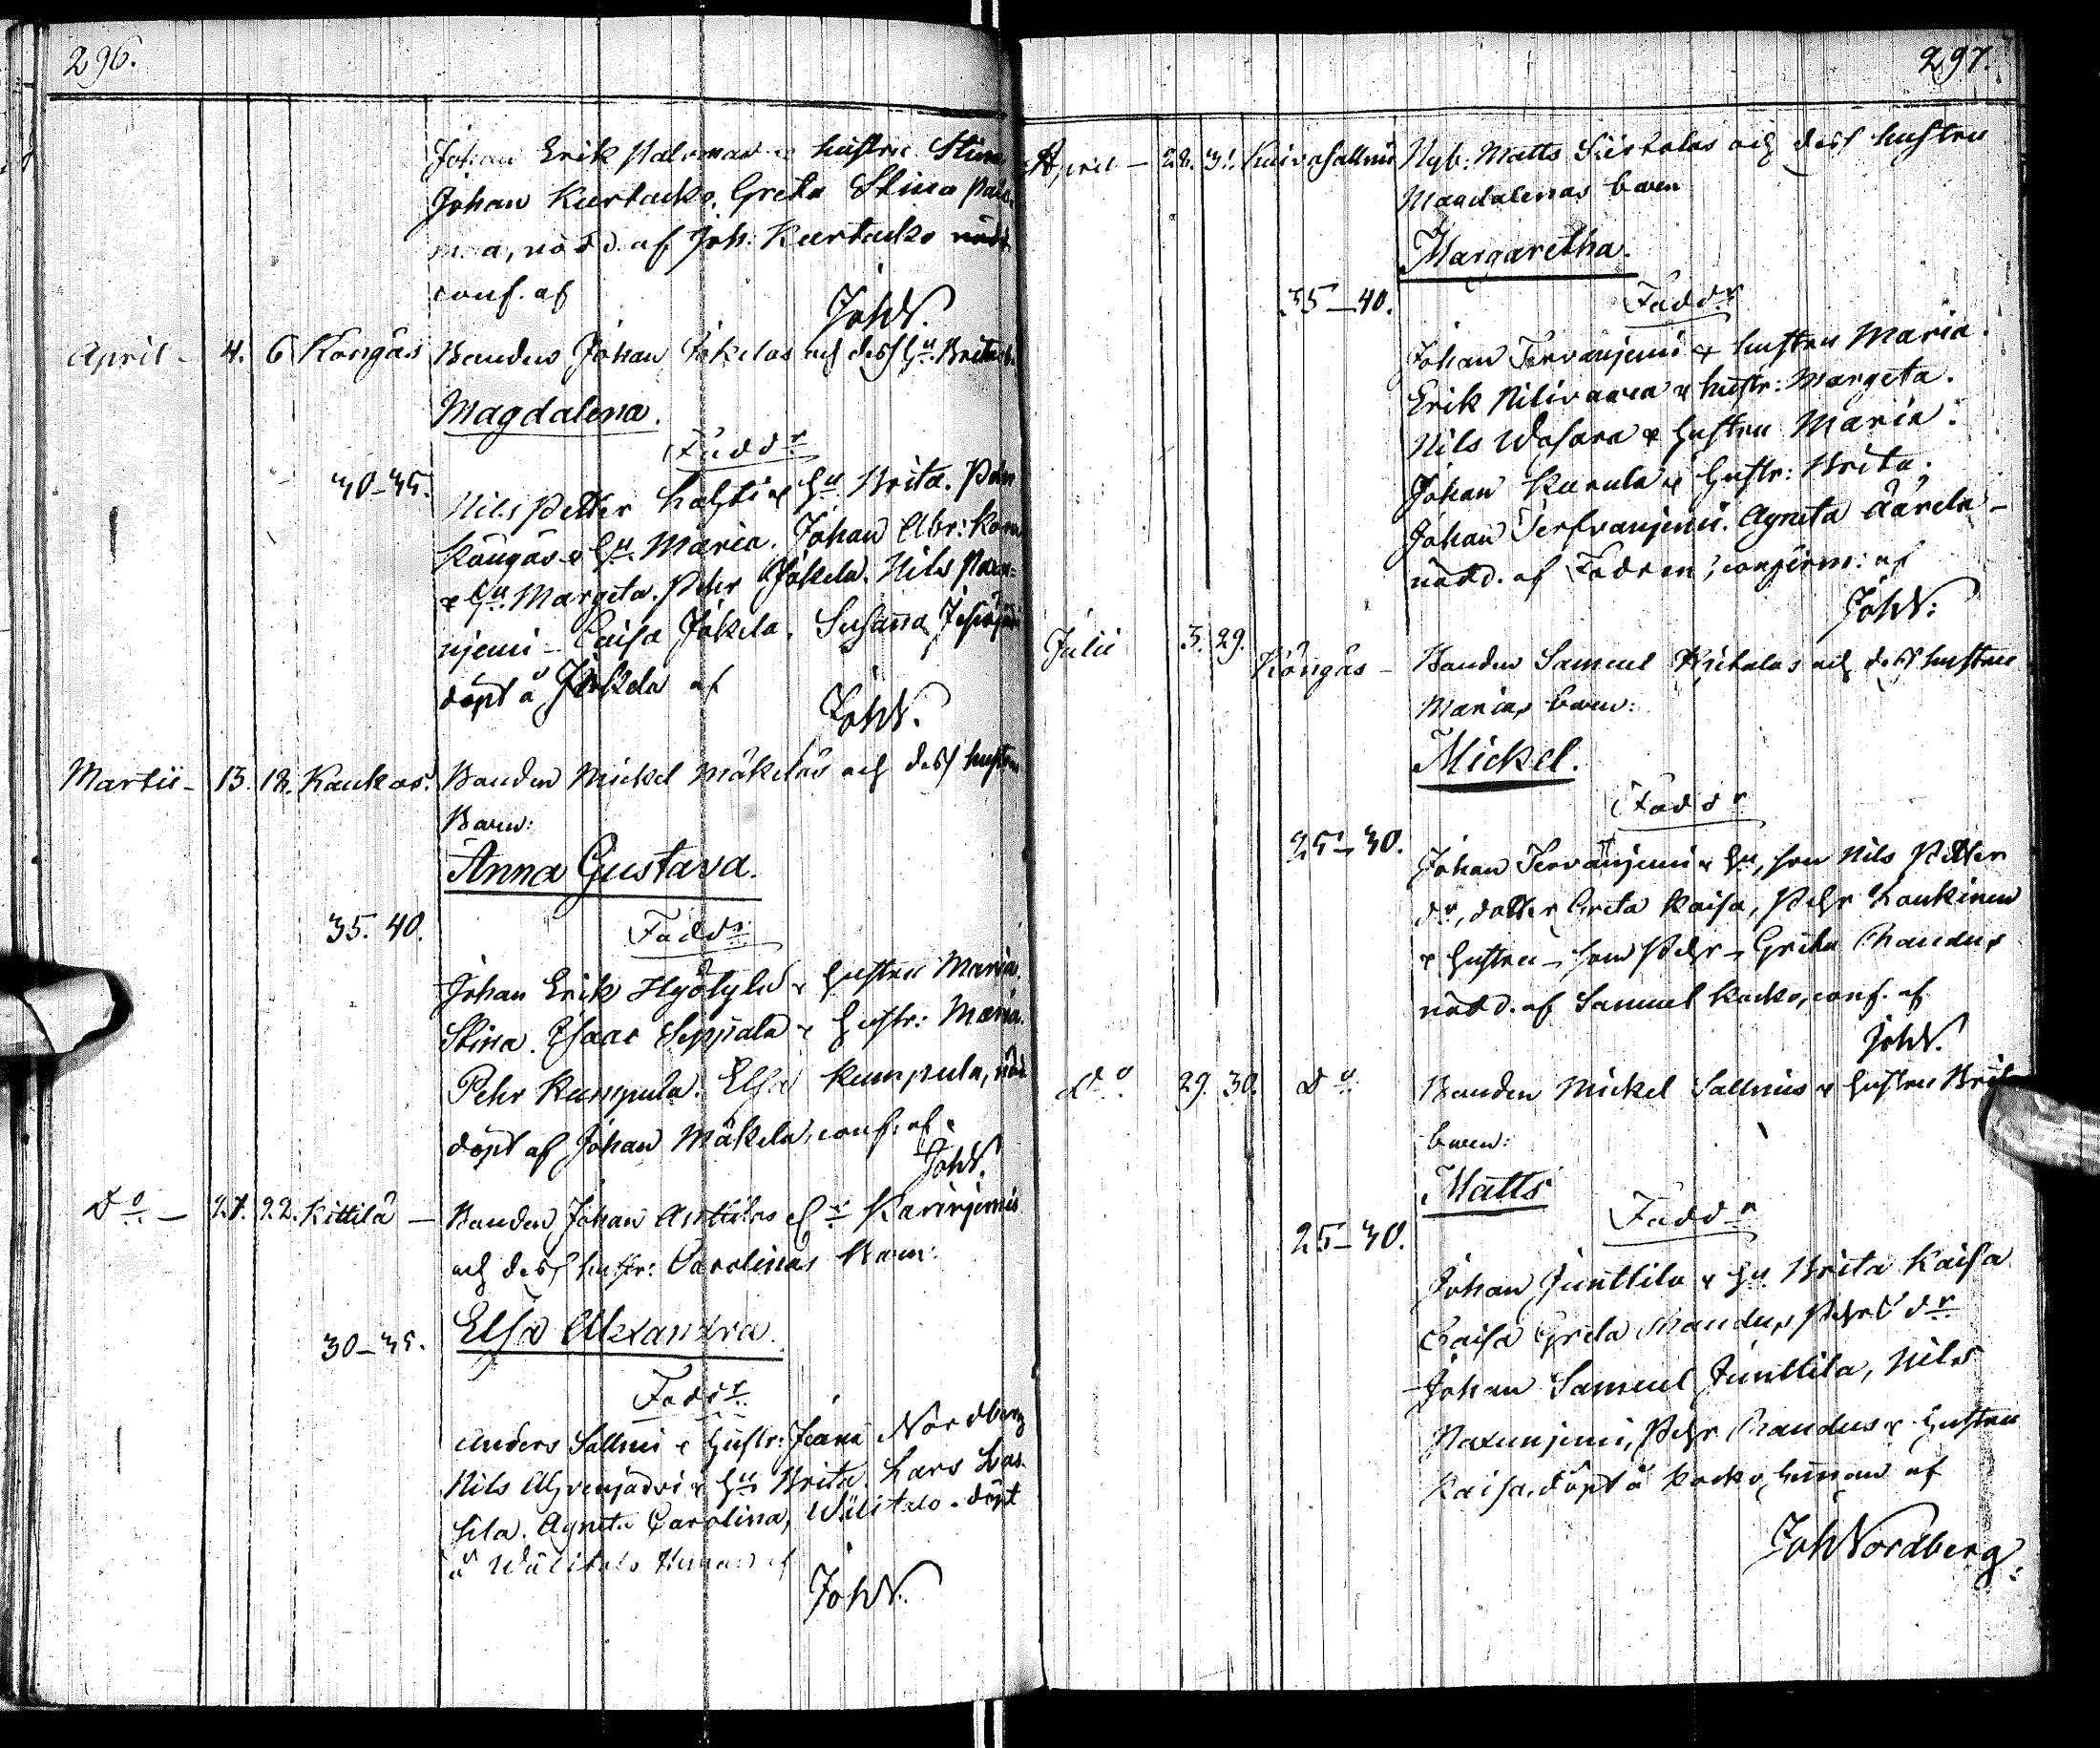 296.
Johan Erik Palomaa & hustru Stina
Johan Kurtacko. Greta Stina Palo-
maa, nödd. af Joh: Kurtacko nödd.
conf. af
JohN.
April - 4. 6 Köngäs Bonden Johan Jokelas och dess Hu. Britas b.
Magdalena.
Faddr
30-35. Nils Petter Lahti & Hu Brita. Pehr
Köngäs & Hu Maria. Johan Abr:
& Hu. Margeta. Pehr Jokela. Nils
njemi - Caisa Jokela. Susanna
döpt å Jokela af
JohN.
Martii - 13. 18. Kaukos. Bonden Mickel Mäkeläs och dess hustru
Barn:
Anna Gustava.
35. 40. Faddr
Johan Erik Hyötylä & hustru Maria
Stina. Isaac Seppälä & hustr: Maria.
Pehr Kumpula. Elsa Kumpula, nöd
döpt af Johan Mäkelä, conf: af
JohN.
Do - 21. 22. Kittilä - Bonden Johan Anttilas
och dess hustr: Carolinas Barn:
Elsa Alexandra.
30-35.
Faddr
Anders Sallmi & hustr: Nordberg
Nils & Hu Brita. Lars
Agneta Carolina, Wälitalo. döpt
å Wälitalo Hemman af
JohN.
297.
April - 28. 31. Nyb: Matts och dess hustru
Magdalenas barn
Margaretha.
35-40. Faddr
Johan Tervanjemi & hustru Maria.
Erik Nilivaara & hustr: Margeta.
Nils Wasara & hustru Maria.
Johan & hustr: Brita.
Johan Terfvanjemi. Agneta Äärelä -
nödd. af Fadren, confirm: af
JohN:
Julii 3. 29. Köngäs - Bonden Samuel och dess hustru
Marias barn:
Mickel.
Faddr
25-30. Johan Tervanjemi & Hu, son Nils Petter
dr, dotter Greta Kaisa, Pehr Laukinen
& hustru - son Pehr - Greta
nödd. af Samuel Kocko, conf. af
JohN.
Do 29. 30. Do Bonden Mickel Sallmis & hustru Brit
barn:
Matts
Faddr
25-30.
Johan Junttila & Hu. Brita Kaisa
Caisa Greta Pehrs dr
Johan Samuel Junttila, Nils
Paxunjemi, Pehr & hustru
Kaisa, döpt å Kocko hemman af
JohNordberg.